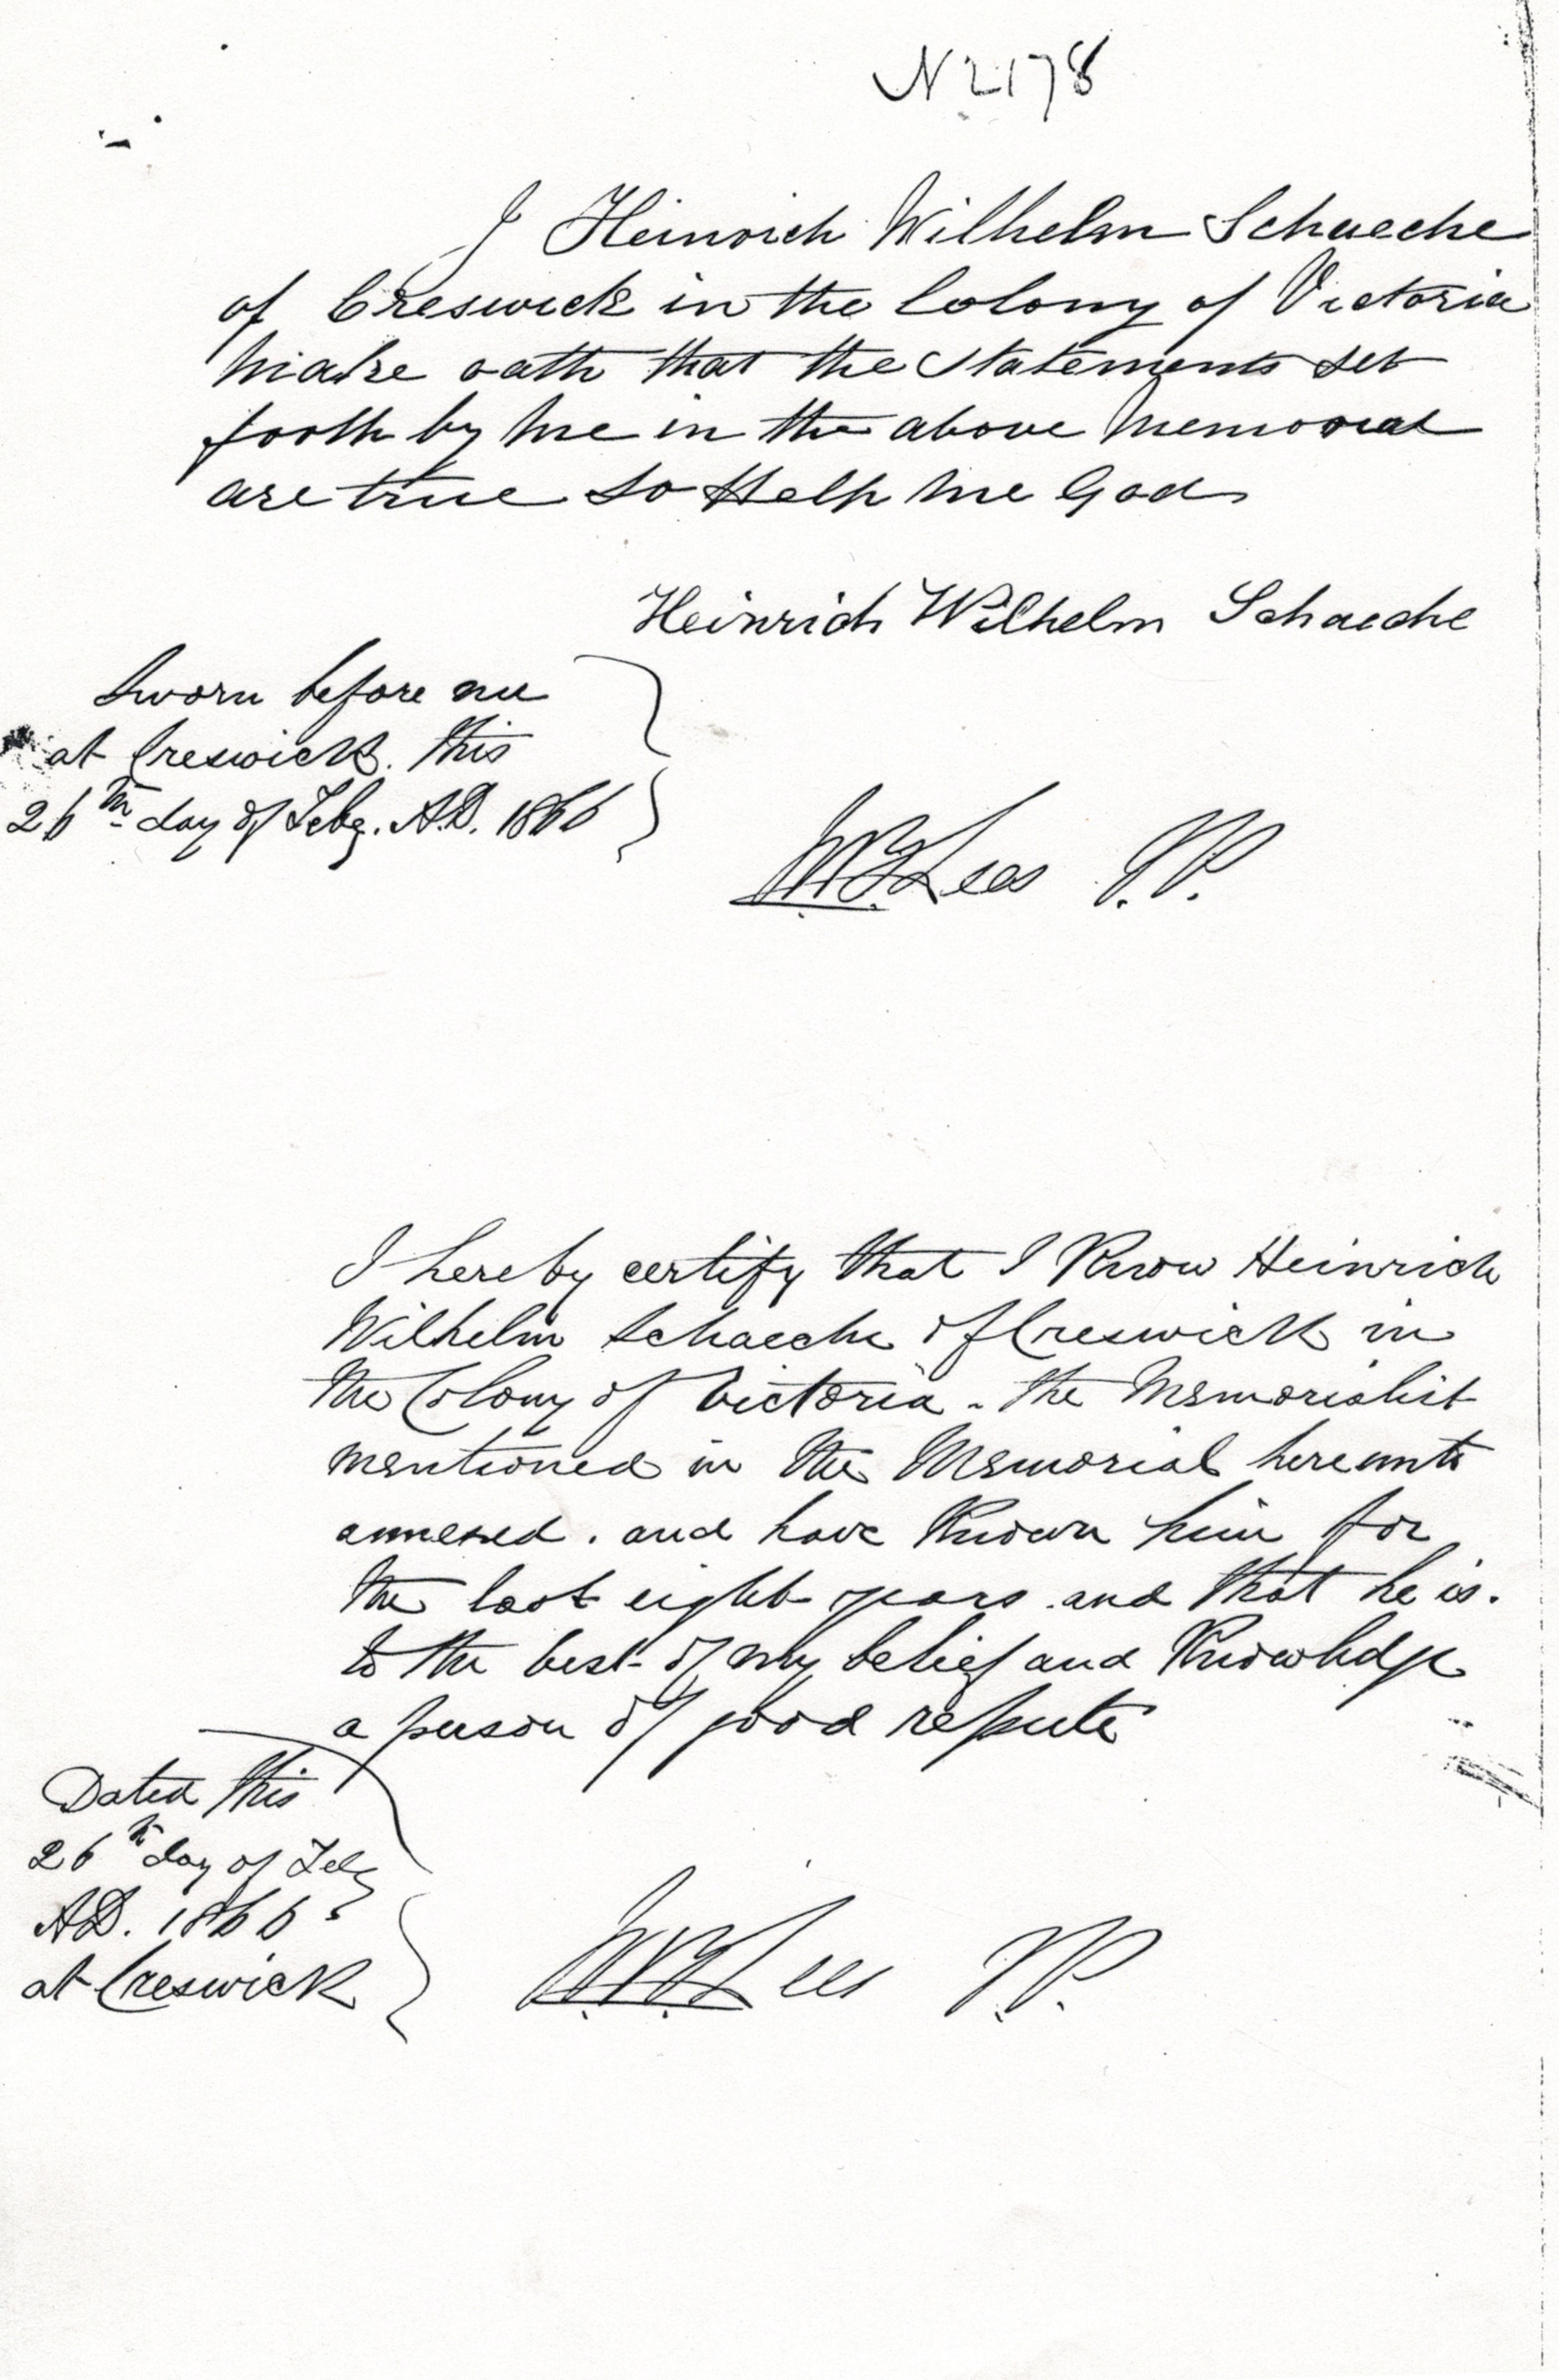 N 2178
I Heinrich Wilhelm Schaeche
of Creswick in the Colony of Victoria
Make oath that the Statements set
forth by Me in the above Memorial
are true So Help Me God
Heinrich Wilhelm Schaeche
Sworn before me
at Creswick. this
26th day of Feby. A.D. 1866
Lees J.P.
I hereby certify that I Know Heinrich
Wilhelm Schaeche of Creswick in
the Colony of Victoria - the Memorialist
mentioned in the Memorial hereunto
annexed. and have Known him for
the last eight years and that he is.
to the best of my belief and Knowledge
a person of good repute
Dated this
26th day of Feby
A.D. 1866
at Creswick
Lees J.P.